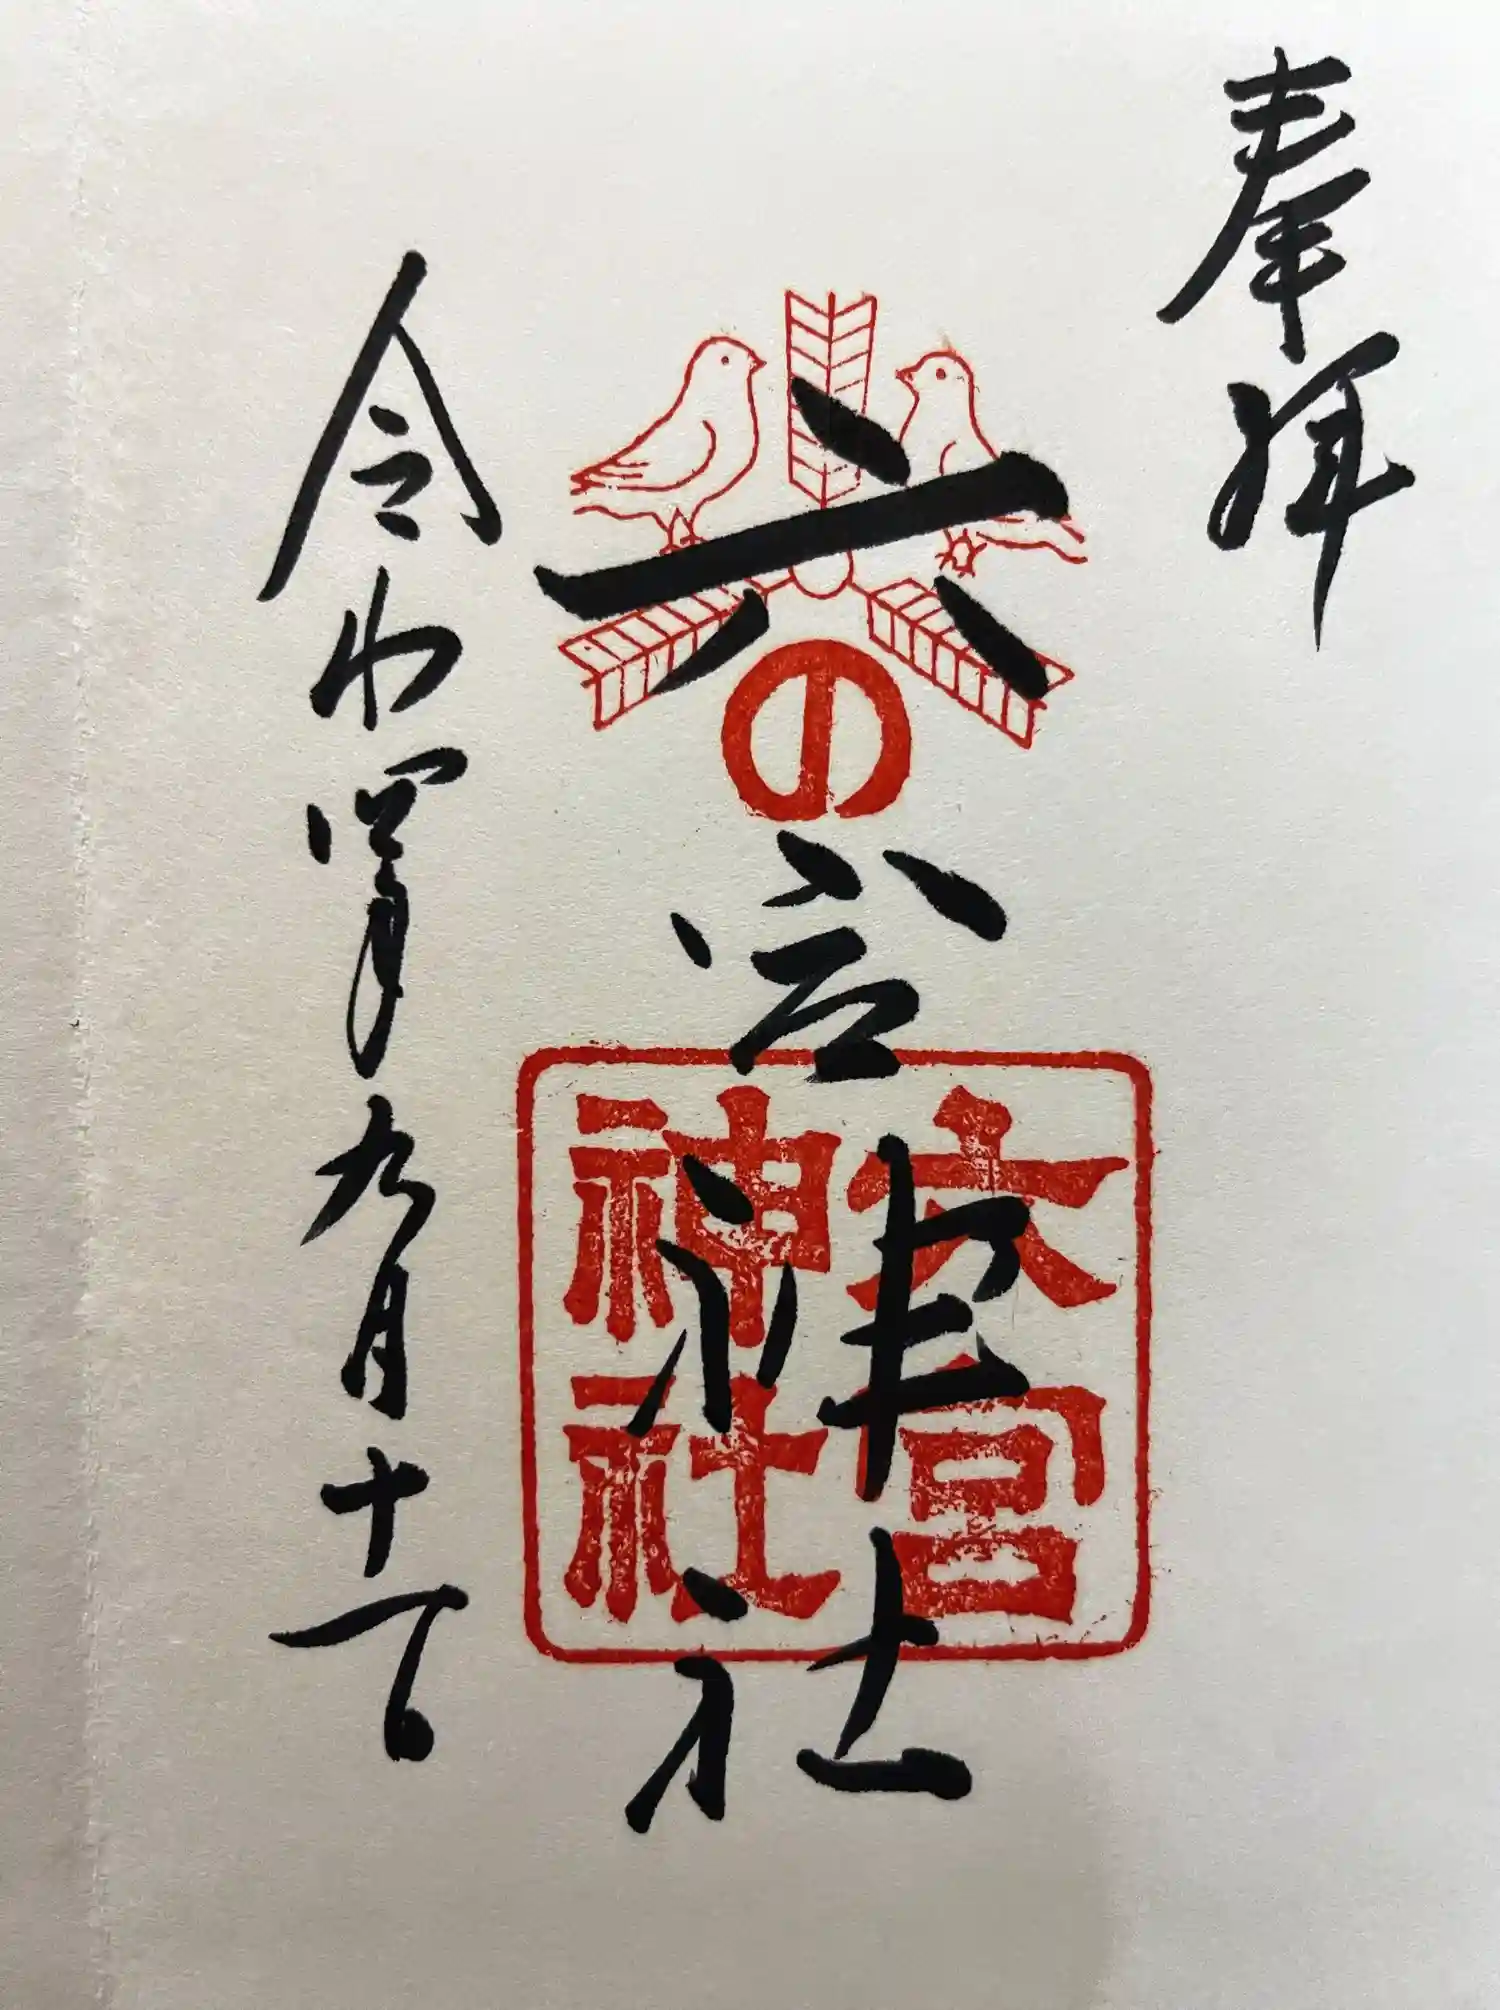 奉拝
六の宮神社
六宮神社
令和四年九月十一日